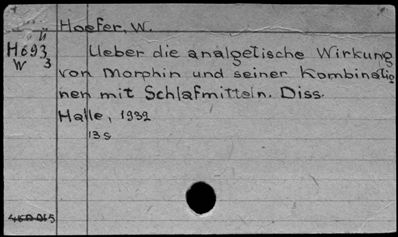 Hoefer, W.
H693
W 3
Ueber die analgetische Wirkung
von Morphin und seiner Kombinatio
nen mit Schlafmitteln. Diss.
Halle, 1932
13 s